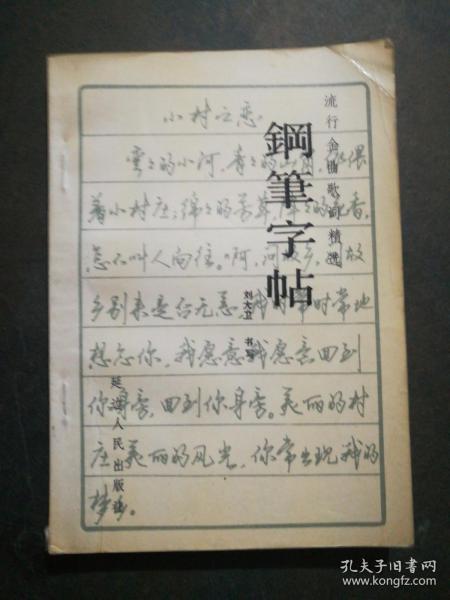 流行金曲歌词精选
鋼筆字帖
刘大卫 书写
延边人民出版社
小村之恋
弯弯的小河，青青的山冈，依偎
着小村庄；绵绵的芳草，阵阵的花香，
怎不叫人向往。啊，问故乡，问故
乡别来是否无恙，我时常时常地
想念你，我愿意我愿意回到
你身旁，回到你身旁。美丽的村
庄美丽的风光，你常出现我的
梦乡。
孔夫子旧书网
www.kongfz.com